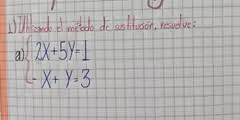 1) Utilizando el método de sustitución, resuelve:
a) { 2X+5Y=1
- X+ Y=3